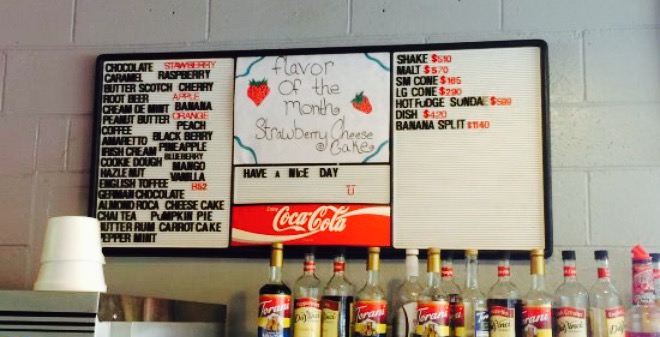 CHOCOLATE STAWBERRY
CARAMEL RASPBERRY
BUTTER SCOTCH CHERRY
ROOT BEER APPLE
CREAM DE MINT BANANA
PEANUT BUTTER ORANGE
COFFEE PEACH
AMARETTO BLACK BERRY
IRISH CREAM PINEAPPLE
COOKIE DOUGH BLUEBERRY
HAZLE NUT MANGO
ENGLISH TOFFEE VANILLA
GERMAN CHOCOLATE B52
ALMOND ROCA CHEESE CAKE
CHAI TEA PUMPKIN PIE
BUTTER RUM CARROT CAKE
PEPPER MINT
flavor
of the
month
Strawberry Cheese
Cake
HAVE A NICE DAY
Ü
Coca-Cola
SHAKE $510
MALT $570
SM CONE $165
LG CONE $290
HOT FUDGE SUNDAE $599
DISH $420
BANANA SPLIT $1140
Torani
DaVinci
Torani
Torani
DaVinci
Torani
DaVinci